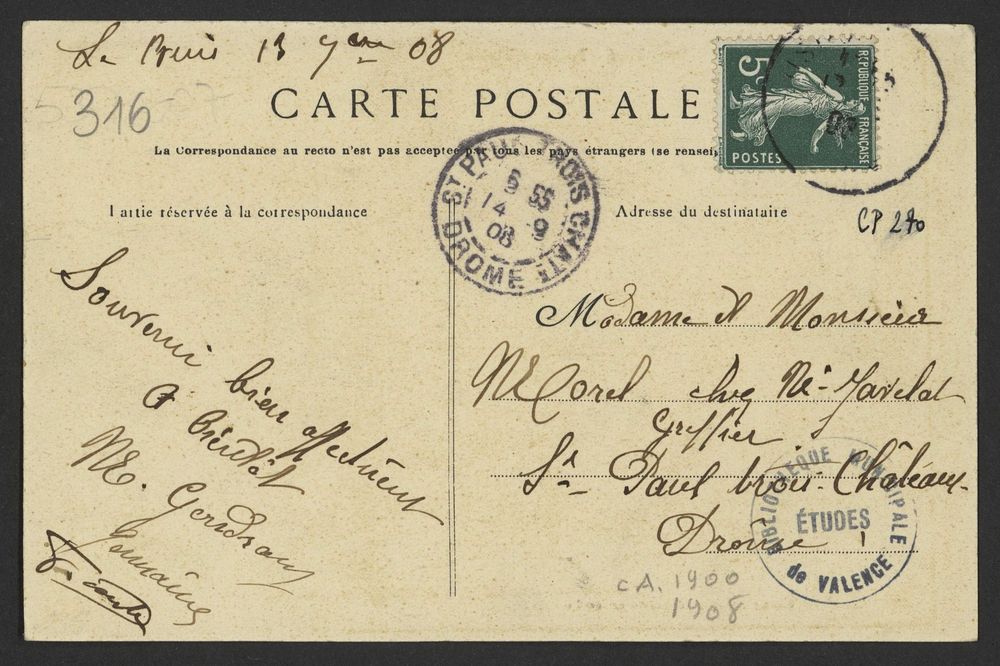 Le Buis 13 7bre 08
316
CARTE POSTALE
La Correspondance au recto n'est pas acceptée par tous les pays étrangers (se rensei
RÉPUBLIQUE FRANÇAISE
5c
POSTES
ST PAUL TROIS CHATX
14 9
08
DROME
Partie réservée à la correspondance
Adresse du destinataire
CP 270
Souvenir bien affectueux
à bientôt
M.
Germaine
Madame et Monsieur
Morel chez Mr
Greffier
St Paul trois-Châteaux
Drôme
BIBLIOTHÈQUE MUNICIPALE
ÉTUDES
de VALENCE
CA. 1900
1908